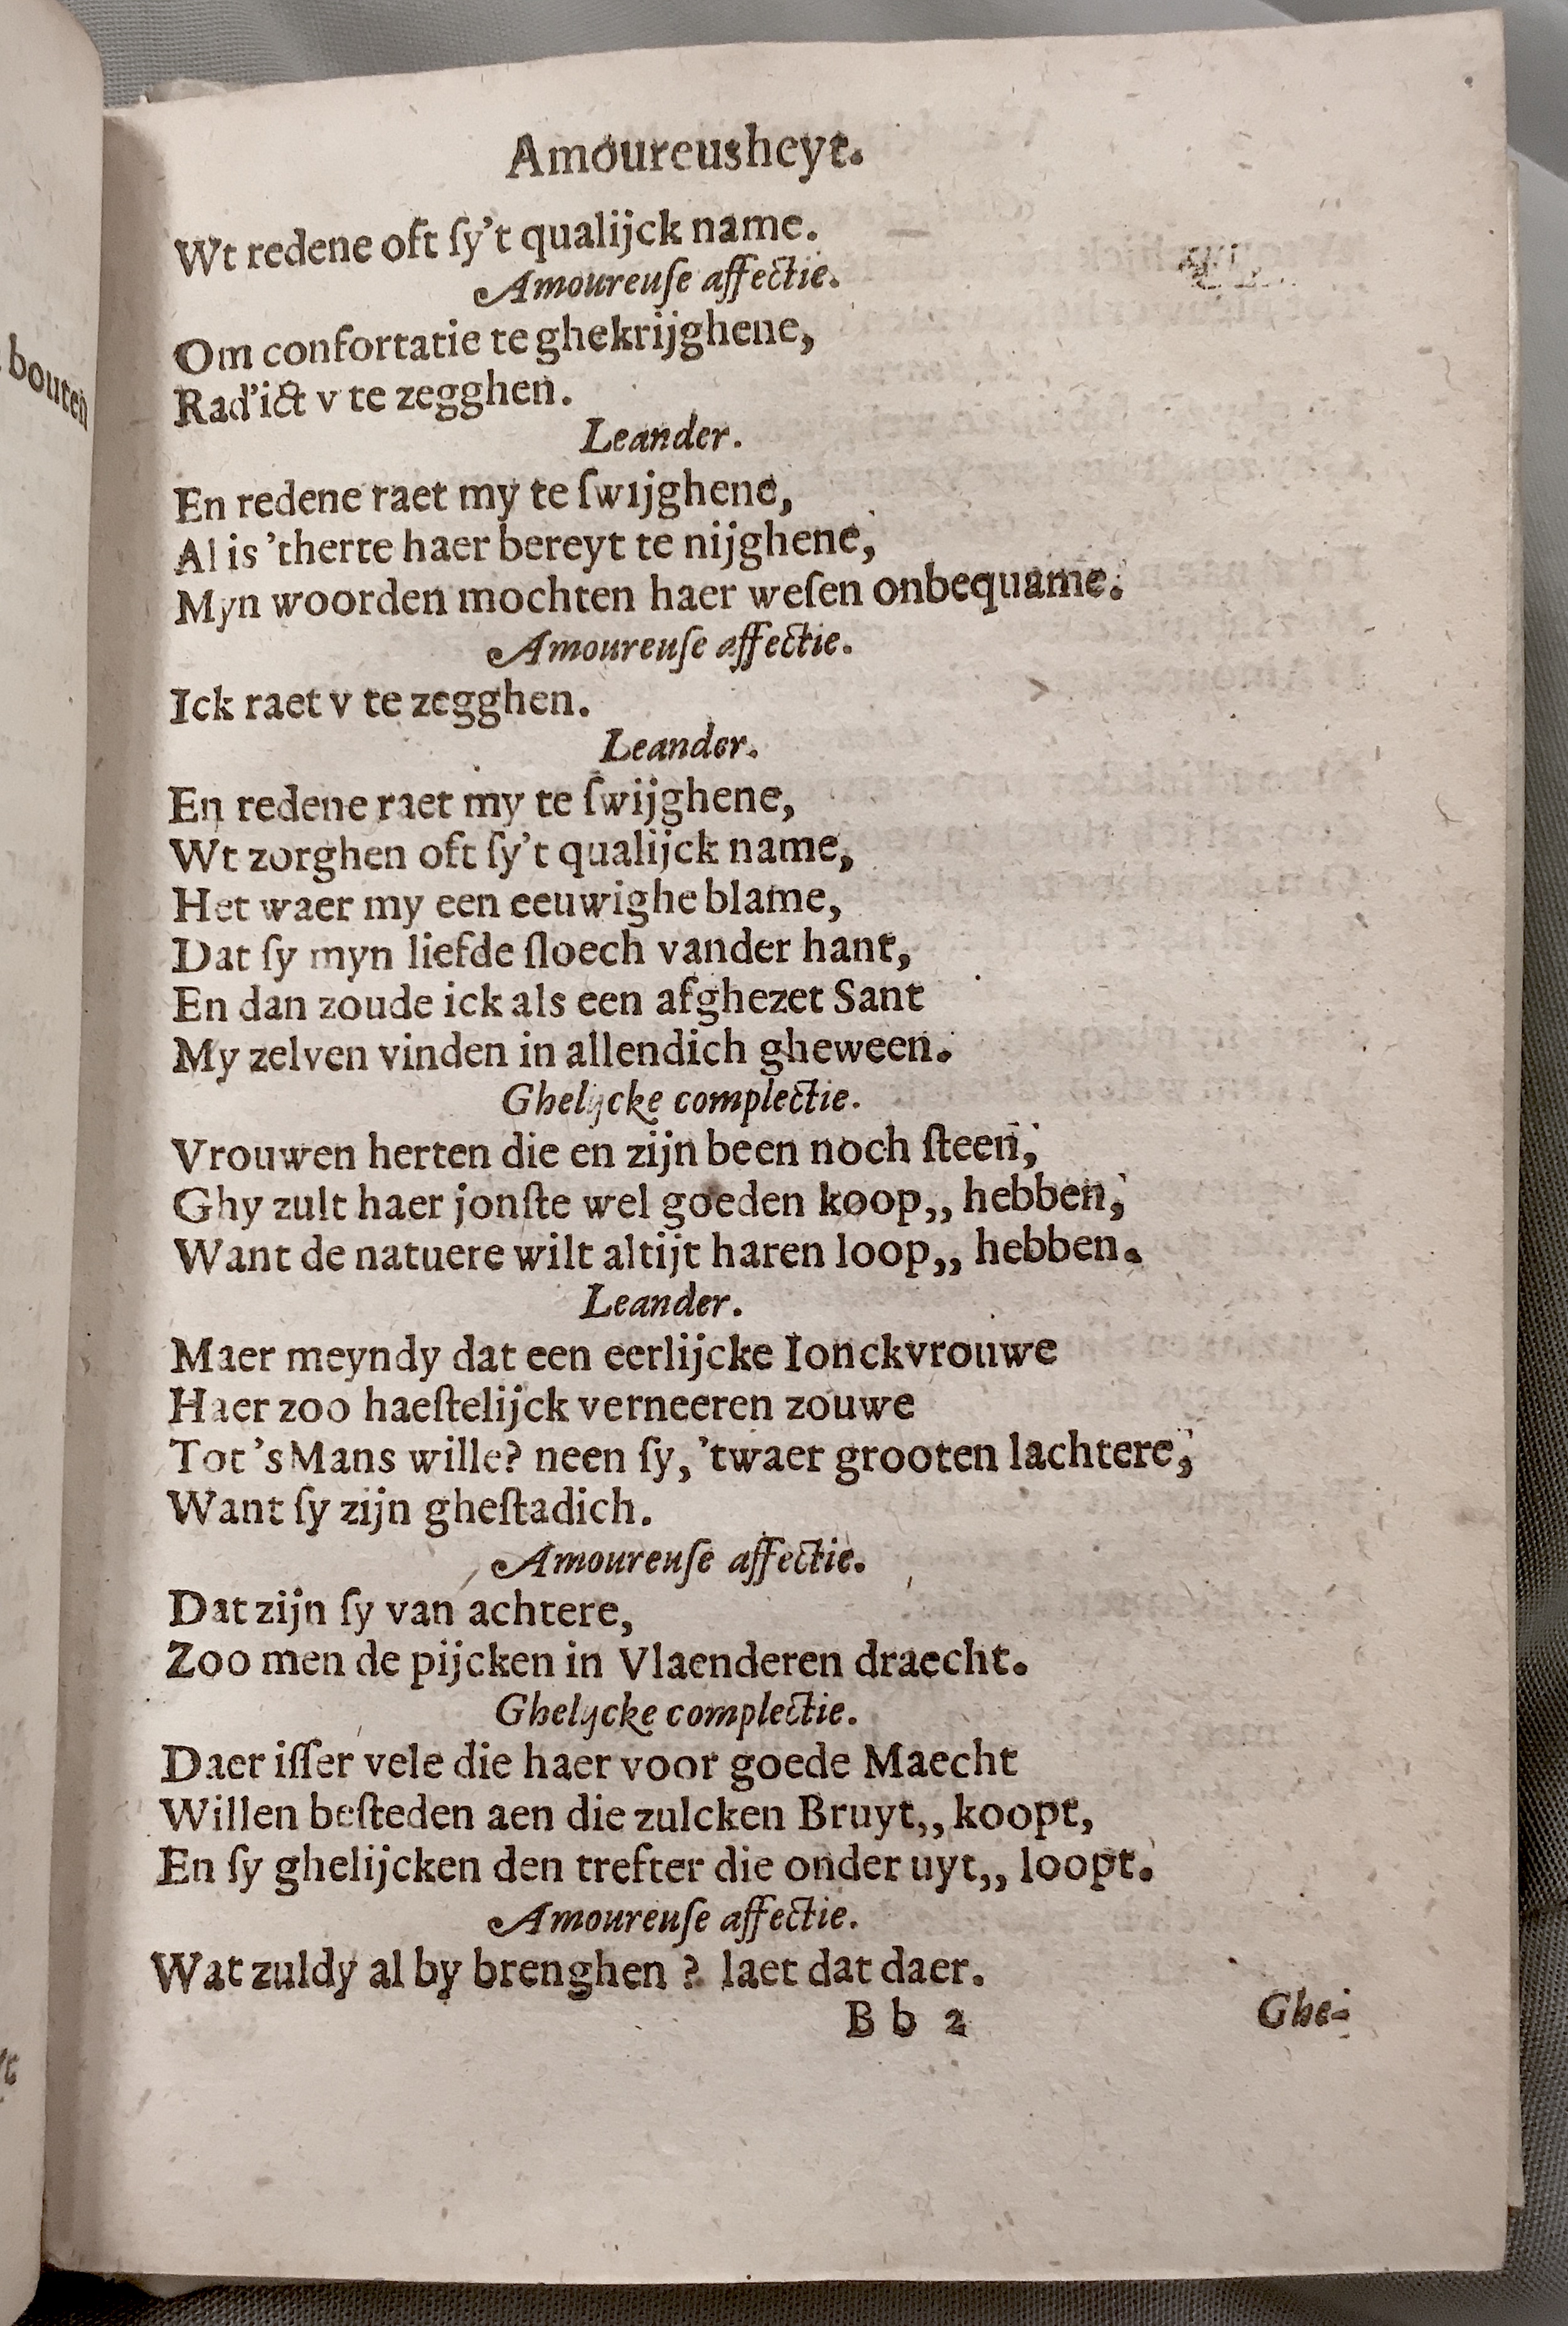 bouten
Amoureusheyt.
Wt redene oft ſy't qualijck name.
Amoureuſe affectie.
Om confortatie te ghekrijghene,
Rad'ict v te zegghen.
Leander.
En redene raet my te ſwijghene,
Al is 'therte haer bereyt te nijghene,
Myn woorden mochten haer weſen onbequame.
Amoureuſe affectie.
Ick raet v te zegghen.
Leander.
En redene raet my te ſwijghene,
Wt zorghen oft ſy't qualijck name,
Het waer my een eeuwighe blame,
Dat ſy myn liefde ſloech vander hant,
En dan zoude ick als een afghezet Sant
My zelven vinden in allendich gheween.
Ghelijcke complectie.
Vrouwen herten die en zijn been noch ſteen,
Ghy zult haer jonſte wel goeden koop,, hebben,
Want de natuere wilt altijt haren loop,, hebben.
Leander.
Maer meyndy dat een eerlijcke Ionckvrouwe
Haer zoo haeſtelijck verneeren zouwe
Tot 's Mans wille? neen ſy, 'twaer grooten lachtere,
Want ſy zijn gheſtadich.
Amoureuſe affectie.
Dat zijn ſy van achtere,
Zoo men de pijcken in Vlaenderen draecht.
Ghelijcke complectie.
Daer iſſer vele die haer voor goede Maecht
Willen beſteden aen die zulcken Bruyt,, koopt,
En ſy ghelijcken den trefter die onder uyt,, loopt.
Amoureuſe affectie.
Wat zuldy al by brenghen? laet dat daer.
B b 2
Ghe-